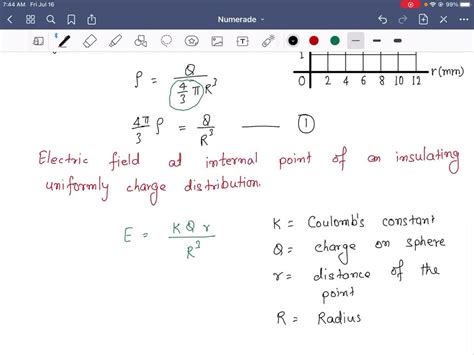 7:44 AM Fri Jul 16
99%
Numerade
ρ = Q / (4/3 π R³)
1
0 2 4 6 8 10 12 r(mm)
4π/3 ρ = Q/R³ —— ①
Electric field at internal point of an insulating
uniformly charge distribution.
E = K Q r / R³
K = Coulomb's constant
Q = charge on sphere
r = distance of the
point
R = Radius